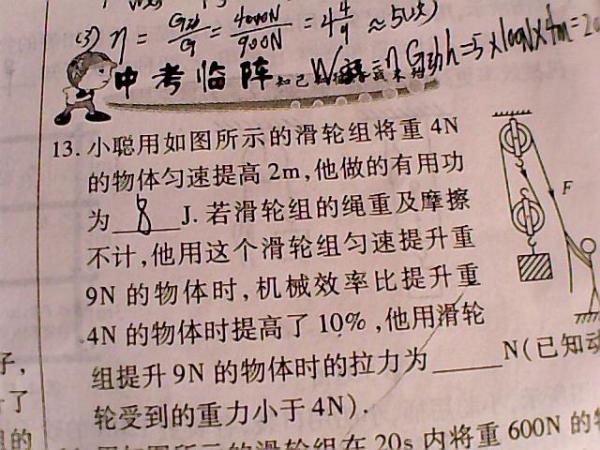 (3) η = G物/G = 4000N/900N = 4 4/9 ≈ 5(次)
中考临阵 知己 G动h=5×100N×4m=20
13. 小聪用如图所示的滑轮组将重 4N
的物体匀速提高 2m,他做的有用功
为 8 J. 若滑轮组的绳重及摩擦
不计,他用这个滑轮组匀速提升重
9N 的物体时,机械效率比提升重
4N 的物体时提高了 10%,他用滑轮
组提升 9N 的物体时的拉力为____N(已知动
轮受到的重力小于 4N).
F
子,
了
的
滑轮组在 20s 内将重 600N 的